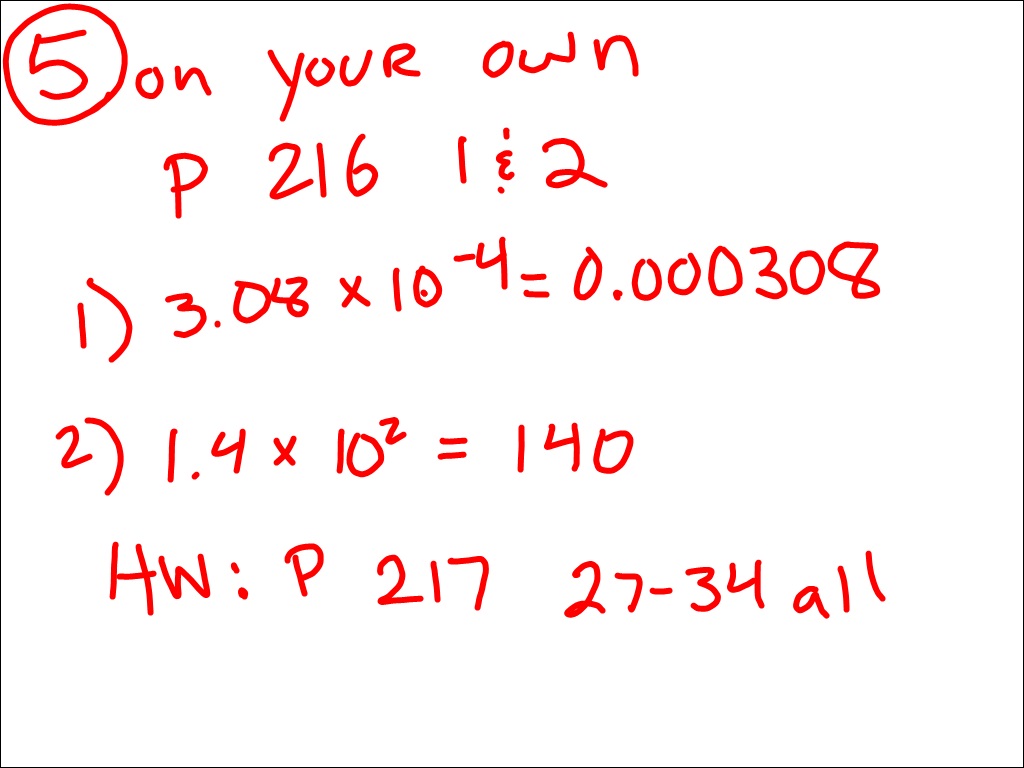 5 on your own
p 216 1 & 2
1) 3.08 x 10⁻⁴ = 0.000308
2) 1.4 x 10² = 140
HW: P 217 27-34 all